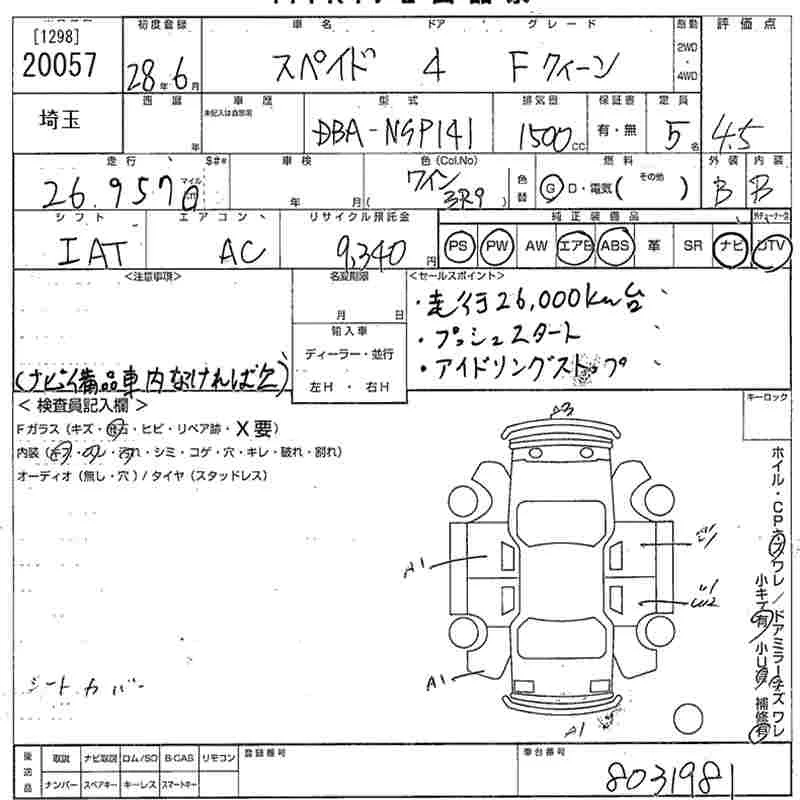 [1298]
20057
初度登録
28年6月
車名 ドア グレード
スペイド 4 Fクィーン
駆動
2WD
・
4WD
評価点
4.5
埼玉
年
車歴
未記入は自家用
型式
DBA-NSP141
排気量
1500cc
保証書
有・無
定員
5名
走行
26,957
マイル
車検
年 月
色(Col.No)
ワイン 3R9
色替
燃料
G D・電気( その他 )
外装
B
内装
B
シフト
IAT
エアコン
AC
リサイクル預託金
9,340円
純正装備品
PS PW AW エアB ABS 革 SR ナビ TV
<注意事項>
(ナビ備品車内なければ欠)
名変期限
月 日
輸入車
ディーラー・並行
左H ・ 右H
<セールスポイント>
・走行26,000km台
・プッシュスタート
・アイドリングストップ
<検査員記入欄>
Fガラス(キズ・飛石・ヒビ・リペア跡・X要)
内装(キズ・汚れ・シミ・コゲ・穴・キレ・破れ・割れ)
オーディオ(無し・穴)/タイヤ(スタッドレス)
キーロック
A3
A1
A1
A1
シートカバー
ホイル・CPキズワレ/ドアミラーキズワレ
小キズ有 小U有 補修有
後送品
取説 ナビ取説 ロム/SD B-CAS リモコン
ナンバー スペアキー キーレス スマートキー
登録番号
車台番号
8031981